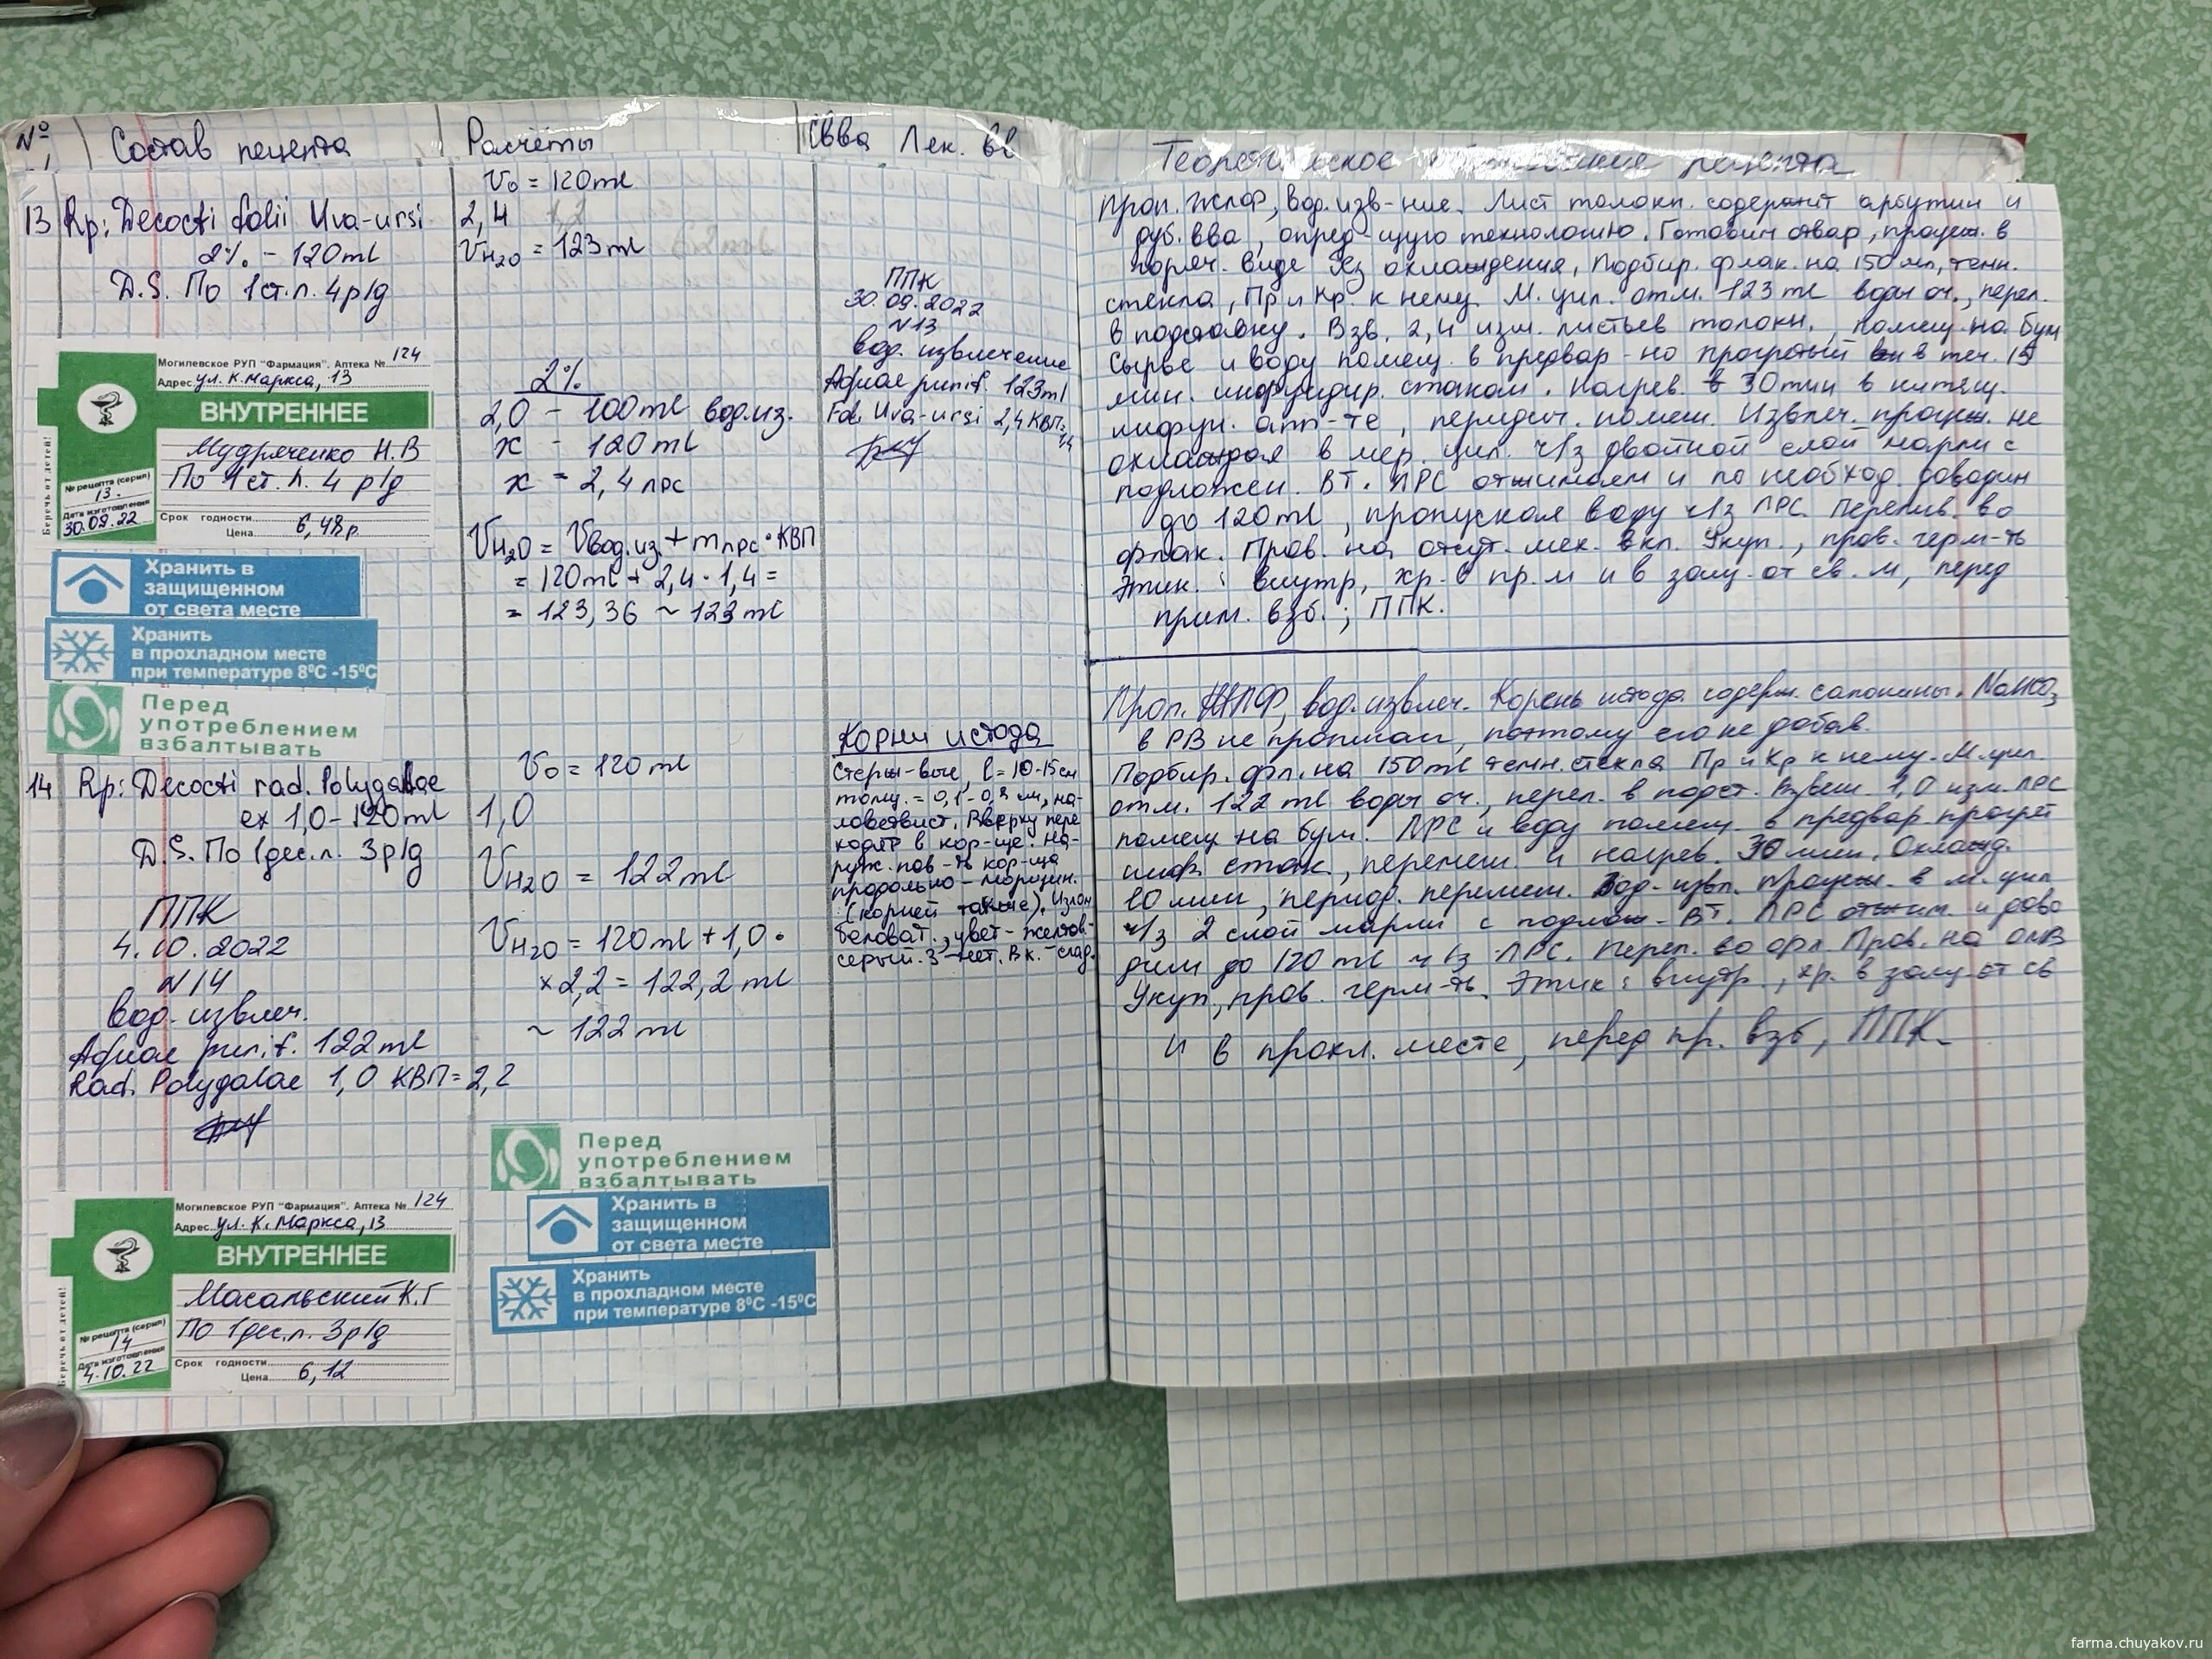 №
Состав рецепта
Расчёты
Свва Лек. вв
13 Rp: Decocti folii Uva-ursi
2% - 120ml
D.S. По 1ст.л. 4р/д
Могилевское РУП "Фармация". Аптека № 124
Адрес ул. К.Маркса, 13
ВНУТРЕННЕЕ
Мудряченко Н.В
По 1ст.л. 4 р/д
Беречь от детей!
№ рецепта (серия)
13.
Дата изготовления
30.09.22
Срок годности
Цена 6,48р
Хранить в
защищенном
от света месте
Хранить
в прохладном месте
при температуре 8⁰С -15⁰С
Перед
употреблением
взбалтывать
14 Rp: Decocti rad. Polygalae
ex 1,0-120ml
D.S. По 1дес.л. 3р/д
ППК
4.10.2022
N14
Вод. извлеч.
Aquae purif. 122ml
Rad. Polygalae 1,0 КВП=2,2
Могилевское РУП "Фармация". Аптека № 124
Адрес ул. К. Маркса, 13
ВНУТРЕННЕЕ
Масальский К.Г
По 1дес.л. 3р/д
Беречь от детей!
№ рецепта (серия)
14
Дата изготовления
4.10.22
Срок годности
Цена 6,12
V₀ = 120ml
2,4
VH₂O = 123ml
2%
2,0 - 100ml вод.из.
x - 120ml
x = 2,4 лрс
VH₂O = Vвод.из.+mлрс·КВП
= 120ml + 2,4·1,4 =
= 123,36 ~ 123ml
V₀ = 120ml
1,0
VH₂O = 122ml
VH₂O = 120ml + 1,0·
×2,2 = 122,2 ml
~ 122 ml
Перед
употреблением
взбалтывать
Хранить в
защищенном
от света месте
Хранить
в прохладном месте
при температуре 8⁰С -15⁰С
ППК
30.09.2022
N13
вод. извлечение
Aquae purif. 123ml
Fol. Uva-ursi 2,4 КВП=
1,4
Корни истода
Стерж-вые, l=10-15см
толщ. = 0,1-0, см, ма-
ловетвист. Вверху пере
ходят в кор-ще. На-
руж. пов-ть кор-ща
продольно-морщин.
(корней также). Излом
беловат., цвет-желтов.-
серый. З-нет. Вк.-слад.
Теоретическое рецепта
Проп. ЖЛФ, вод.изв-ние. Лист толокн. содержит арбутин и
дуб. вва, опред-щую технологию. Готовим отвар, процеж. в
горяч. виде без охлаждения, Подбир. флак. на 150мл, темн.
стекла, Пр и Кр. к нему. М. цил. отм. 123 ml воды оч., перел.
в подставку. Взв. 2,4 изм. листьев толокн., помещ. на бум
Сырье и воду помещ. в предвар-но прогретый в теч. 15
мин. инфундир. стакан. Нагрев. 30мин в кипящ.
инфун. апп-те, период. помеш. Извлеч. процеж. не
охлаждая в мер. цил. ч/з двойной слой марли с
подложен. ВТ. ЛРС отжимаем и по необход. доводим
до 120ml, пропуская воду ч/з ЛРС. Перелив. во
флак. Пров. на отсут. мех. вкл. Укуп., пров. герм-ть
Этик.: внутр, хр. в пр.м и в защ. от св. м, перед
прим. взб.; ППК.
Проп. ЖЛФ, вод. извлеч. Корень истода содерж. сапонины. NaHCO₃
в РВ не прописан, поэтому его не добав.
Подбир. фл. на 150ml темн. стекла Пр и Кр к нему. М.цил.
отм. 122 ml воды оч., перел. в подст. Взвеш. 1,0 изм. ЛРС
помещ на бум. ЛРС и воду помещ. в предвар. прогрет
инф. стак., перемеш. и нагрев. 30 мин. Охлажд.
10 мин, период. перемеш. Вод. извл. процеж. в м. цил
ч/з 2 слой марли с подлож- ВТ. ЛРС отжим. и дово
дим до 120 ml ч/з ЛРС. Перел. во фл. Пров. на ОМВ
Укуп, пров. герм-ть. Этик: внутр., хр. в защ. от св
и в прохл. месте, перед пр. взб, ППК.
farma.chuyakov.ru